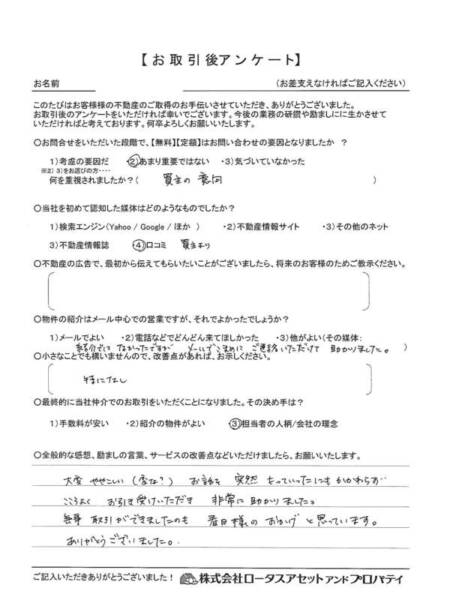 【お取引後アンケート】
お名前 (お差支えなければご記入ください)
このたびはお客様様の不動産のご取得のお手伝いさせていただき、ありがとうございました。
お取引後のアンケートをいただければ幸いでございます。今後の業務の研鑽や励ましにに生かさせて
いただければと考えております。何卒よろしくお願いいたします。
○お問合せをいただいた段階で、【無料】【定額】はお問い合わせの要因となりましたか ?
1)考慮の要因だ ②あまり重要ではない ・3)気づいていなかった
※2) 3)をお選びの方・・・・
何を重視されましたか?( 買主の意向 )
○当社を初めて認知した媒体はどのようなものでしたか?
1)検索エンジン(Yahoo / Google / ほか ) ・2)不動産情報サイト ・3)その他のネット
3)不動産情報誌 ④口コミ 買主より
○不動産の広告で、最初から伝えてもらいたいことがございましたら、将来のお客様のためご教示ください。
○物件の紹介はメール中心での営業ですが、それでよかったでしょうか?
1)メールでよい ・2)電話などでどんどん来てほしかった ・3)他がよい(その媒体: )
紹介ではなかったですが メールでこまめに ご連絡いただけて 助かりました。
○小さなことでも構いませんので、改善点があれば、お示しください。
特になし
○最終的に当社仲介でのお取引をいただくことになりました。その決め手は?
1)手数料が安い ・2)紹介の物件がよい ③担当者の人柄/会社の理念
○全般的な感想、励ましの言葉、サービスの改善点などいただけましたら、お願いいたします。
大変 ややこしい (変な?) お話を 突然 もっていったにもかかわらず
こころよく お引き受けいただき 非常に助かりました。
無事 取引ができましたのも 様のおかげ と思っています。
ありがとうございました。
ご記入いただきありがとうございました! 株式会社ロータスアセットアンドプロパティ